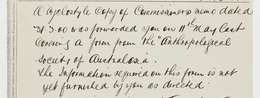 A Hylostyle Copy of Commissioners memo dated
31 3 00 was forwarded you on 11th May last
Covering a form from the "Anthropological
Society of Australasia.
The Information required on this form is not
yet furnished by you as directed.